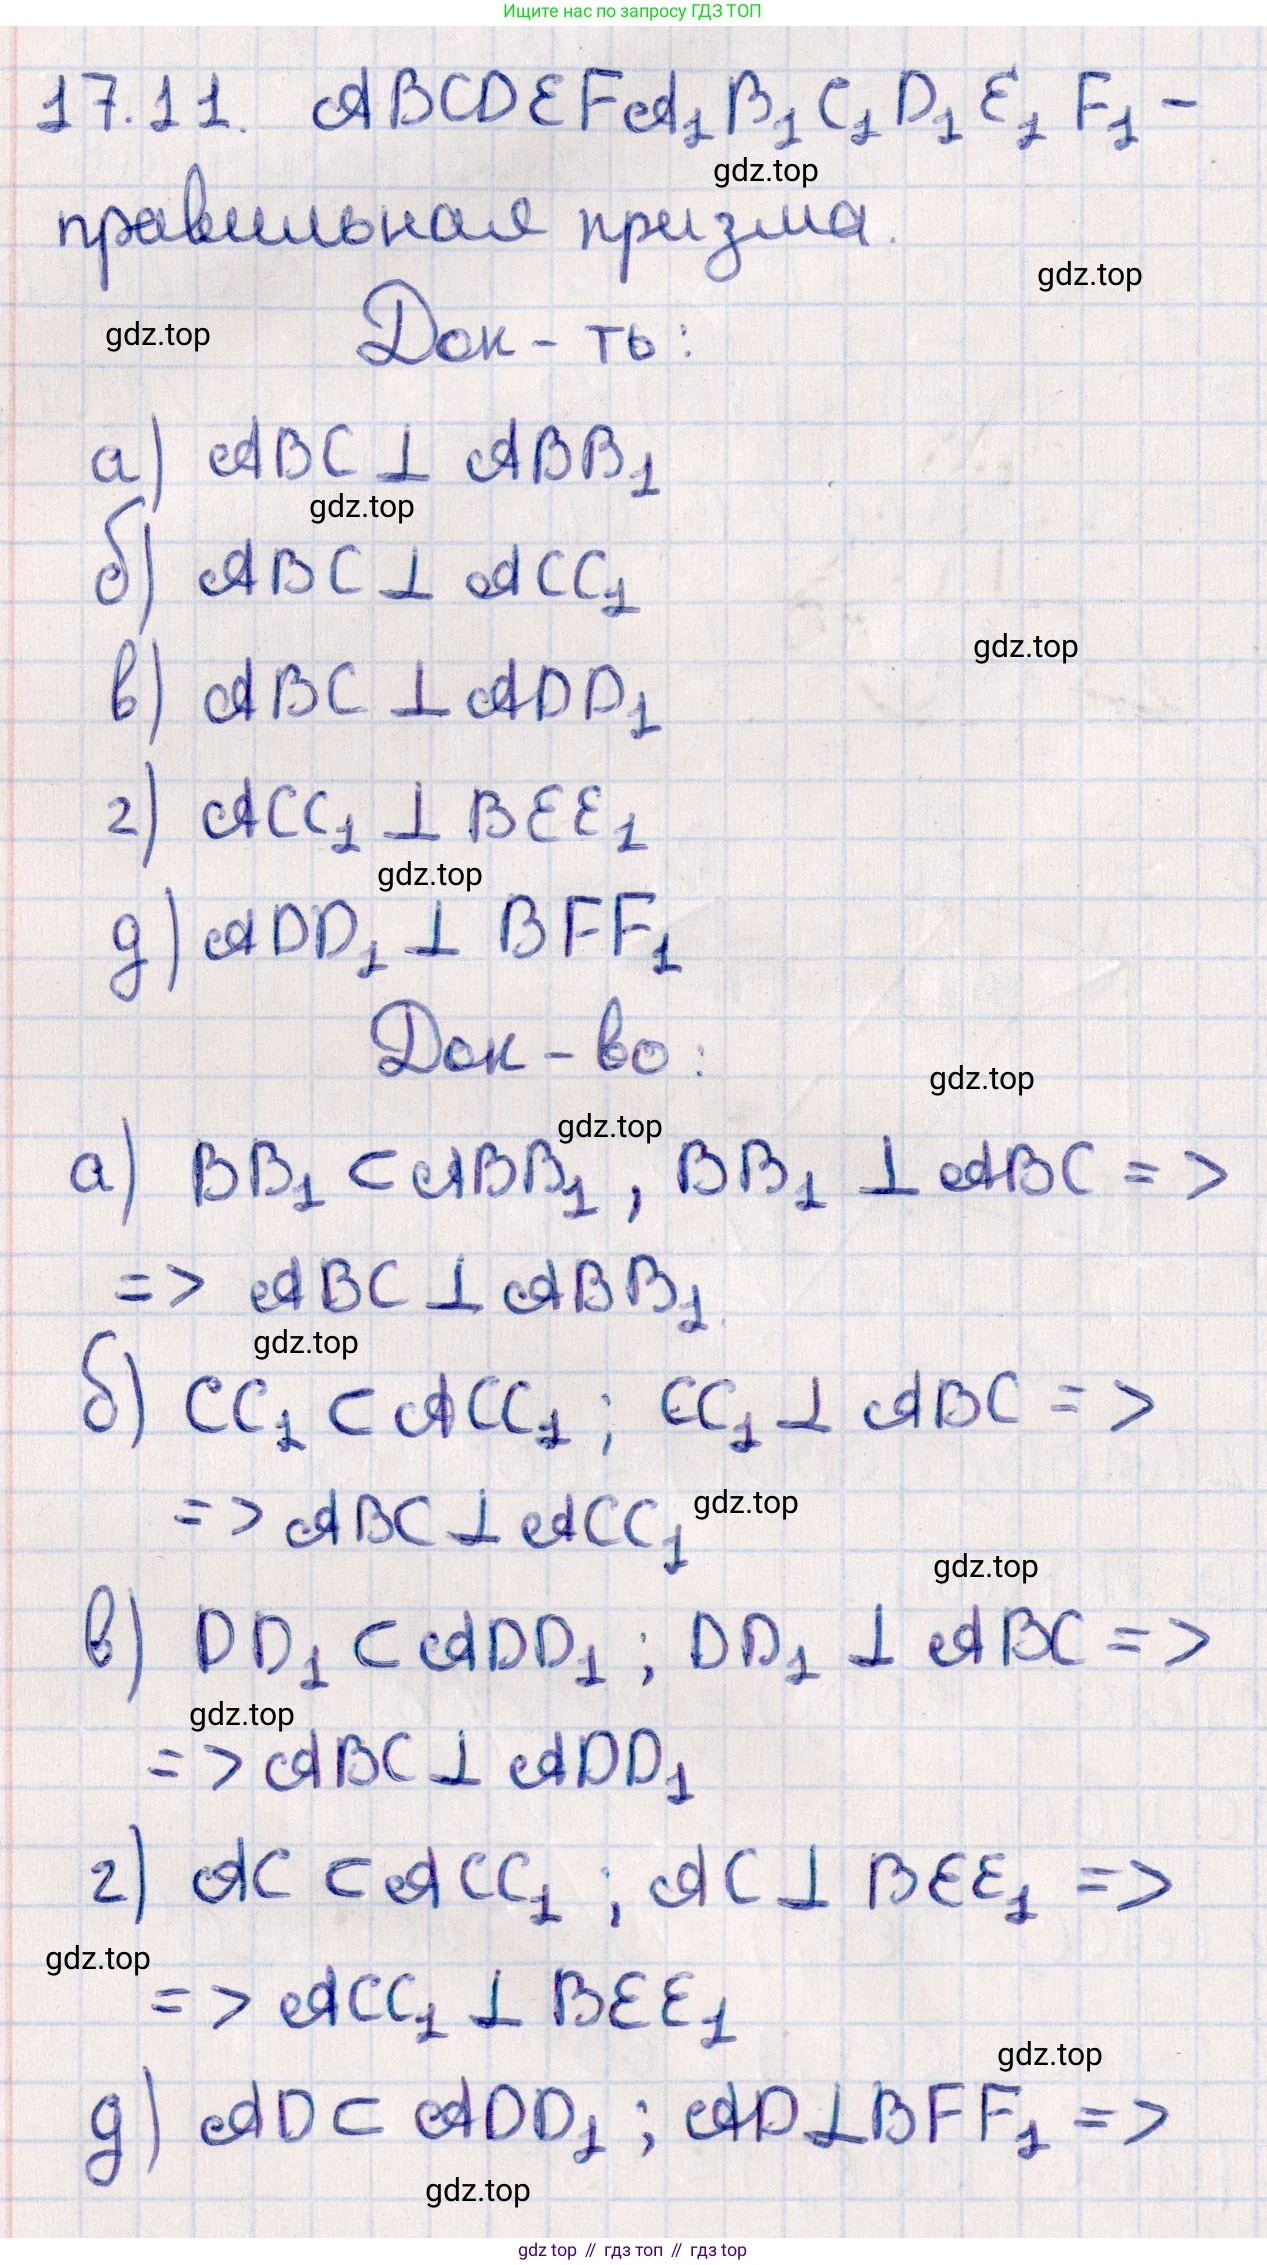 Ищите нас по запросу ГДЗ ТОП
17.11. ABCDEFA₁B₁C₁D₁E₁F₁ –
gdz.top
правильная призма.
gdz.top
gdz.top
Док-ть:
а) ABC ⊥ ABB₁
gdz.top
б) ABC ⊥ ACC₁
gdz.top
в) ABC ⊥ ADD₁
г) ACC₁ ⊥ BEE₁
gdz.top
д) ADD₁ ⊥ BFF₁
Док-во:
gdz.top
gdz.top
а) BB₁ ⊂ ABB₁, BB₁ ⊥ ABC =>
=> ABC ⊥ ABB₁.
gdz.top
б) CC₁ ⊂ ACC₁; CC₁ ⊥ ABC =>
gdz.top
=> ABC ⊥ ACC₁
gdz.top
в) DD₁ ⊂ ADD₁; DD₁ ⊥ ABC =>
gdz.top
=> ABC ⊥ ADD₁
г) AC ⊂ ACC₁; AC ⊥ BEE₁ =>
gdz.top
=> ACC₁ ⊥ BEE₁
gdz.top
д) AD ⊂ ADD₁; AD ⊥ BFF₁ =>
gdz.top
gdz top // гдз топ // gdz top